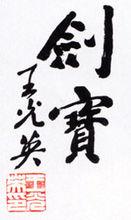 劍寶
王光英